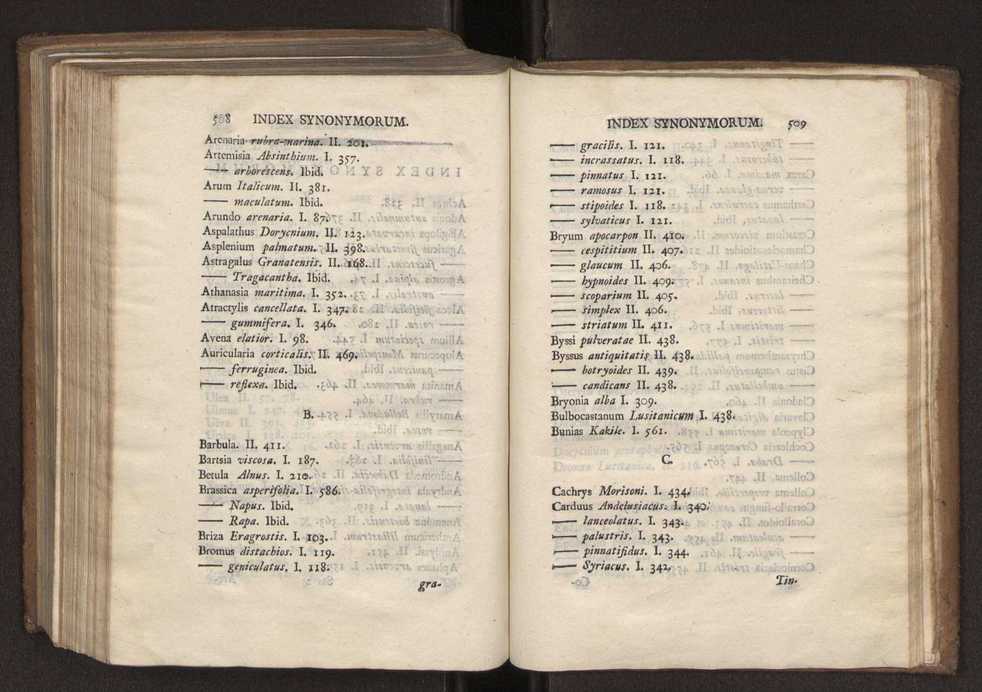 508 INDEX SYNONYMORUM.
Arenaria rubra-marina. II. 201.
Artemisia Absinthium. I. 357.
—— arborescens. Ibid.
Arum Italicum. II. 381.
—— maculatum. Ibid.
Arundo arenaria. I. 87.
Aspalathus Dorycnium. II. 123.
Asplenium palmatum. II. 398.
Astragalus Granatensis. II. 168.
—— Tragacantha. Ibid.
Athanasia maritima. I. 352.
Atractylis cancellata. I. 347.
—— gummifera. I. 346.
Avena elatior. I. 98.
Auricularia corticalis. II. 469.
—— ferruginea. Ibid.
—— reflexa. Ibid.
B.
Barbula. II. 411.
Bartsia viscosa. I. 187.
Betula Alnus. I. 210.
Brassica asperifolia. I. 586.
—— Napus. Ibid.
—— Rapa. Ibid.
Briza Eragrostis. I. 103.
Bromus distachios. I. 119.
—— geniculatus. I. 118.
gra-
INDEX SYNONYMORUM. 509
—— gracilis. I. 121.
—— incrassatus. I. 118.
—— pinnatus I. 121.
—— ramosus I. 121.
—— stipoides I. 118.
—— sylvaticus I. 121.
Bryum apocarpon II. 410.
—— cespititium II. 407.
—— glaucum II. 406.
—— hypnoides II. 409.
—— scoparium II. 405.
—— simplex II. 406.
—— striatum II. 411.
Byssi pulveratae II. 438.
Byssus antiquitatis II. 438.
—— botryoides II. 439.
—— candicans II. 438.
Bryonia alba I. 309.
Bulbocastanum Lusitanicum I. 438.
Bunias Kakile. I. 561.
C.
Cachrys Morisoni. I. 434.
Carduus Andelusiacus. I. 340.
—— lanceolatus. I. 343.
—— palustris. I. 343.
—— pinnatifidus. I. 344.
—— Syriacus. I. 342.
Tin-